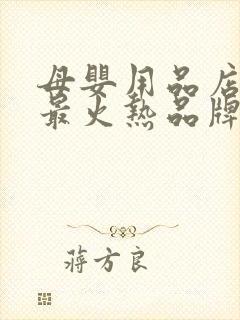 母婴用品店
最火热品牌
蒋方良